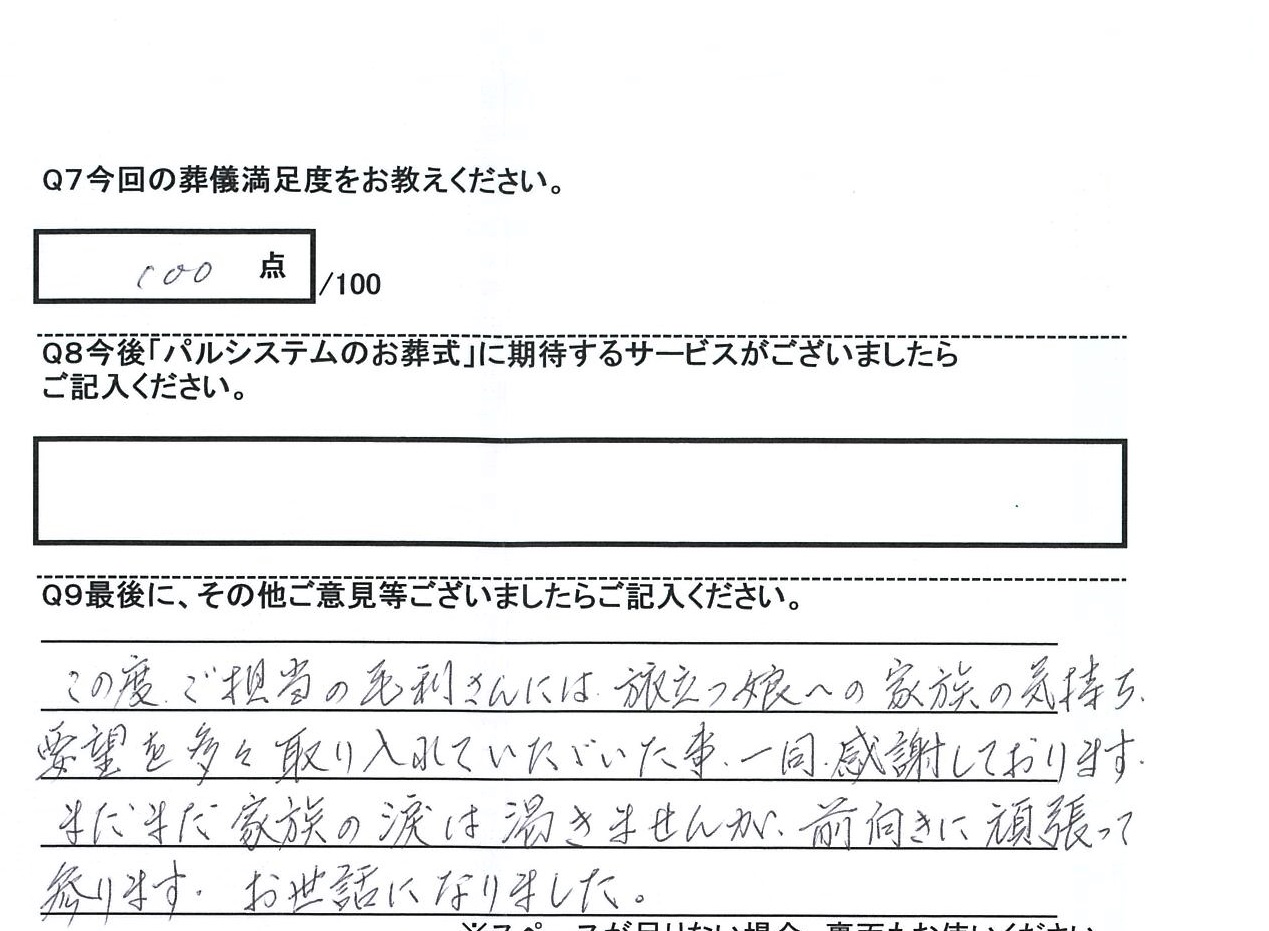 Q7今回の葬儀満足度をお教えください。
100 点 /100
Q8今後「パルシステムのお葬式」に期待するサービスがございましたら
ご記入ください。
Q9最後に、その他ご意見等ございましたらご記入ください。
この度、ご担当の毛利さんには、旅立つ娘への家族の気持ち、
要望を多々取り入れていただいた事、一同、感謝しております。
まだまだ家族の涙は渇きませんが、前向きに頑張って
参ります。お世話になりました。
※スペースが足りない場合、裏面もお使いください